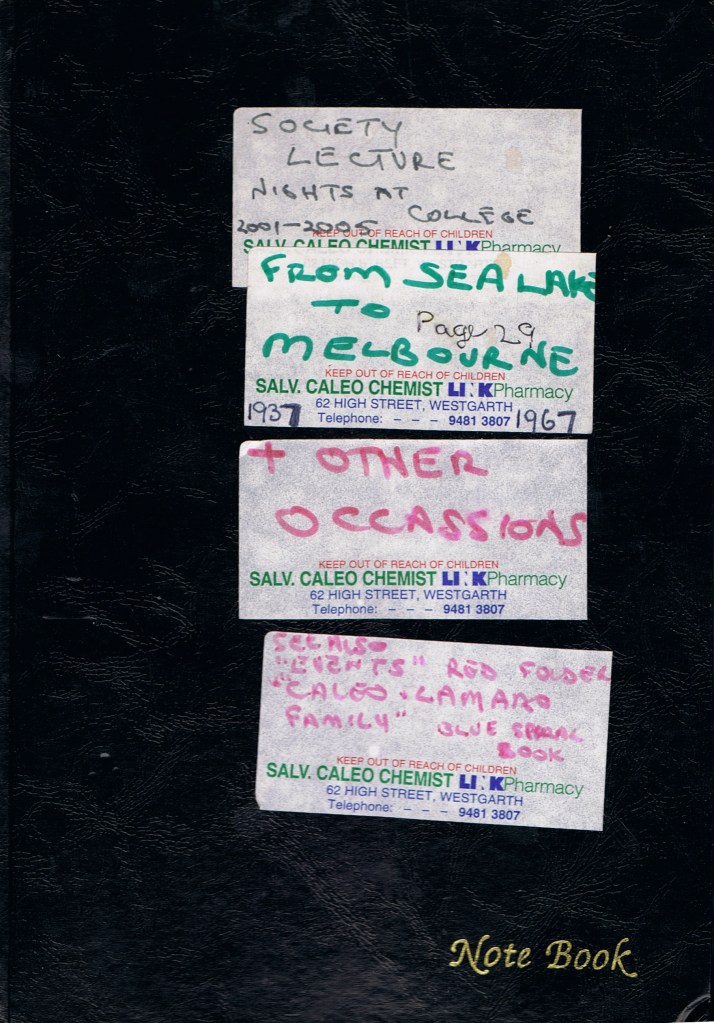 SOCIETY
LECTURE
NIGHTS AT
COLLEGE
2001-2005
KEEP OUT OF REACH OF CHILDREN
SALV. CALEO CHEMIST LINK Pharmacy
FROM SEA LAKE
TO
Page 29
MELBOURNE
KEEP OUT OF REACH OF CHILDREN
SALV. CALEO CHEMIST LINK Pharmacy
62 HIGH STREET, WESTGARTH
1937 Telephone: - - - 9481 3807 1967
+ OTHER
OCCASSIONS
KEEP OUT OF REACH OF CHILDREN
SALV. CALEO CHEMIST LINK Pharmacy
62 HIGH STREET, WESTGARTH
Telephone: - - - 9481 3807
SEE ALSO
"EVENTS" RED FOLDER
"CALEO-LAMARO
FAMILY" BLUE SPIRAL
BOOK
KEEP OUT OF REACH OF CHILDREN
SALV. CALEO CHEMIST LINK Pharmacy
62 HIGH STREET, WESTGARTH
Telephone: - - - 9481 3807
Note Book